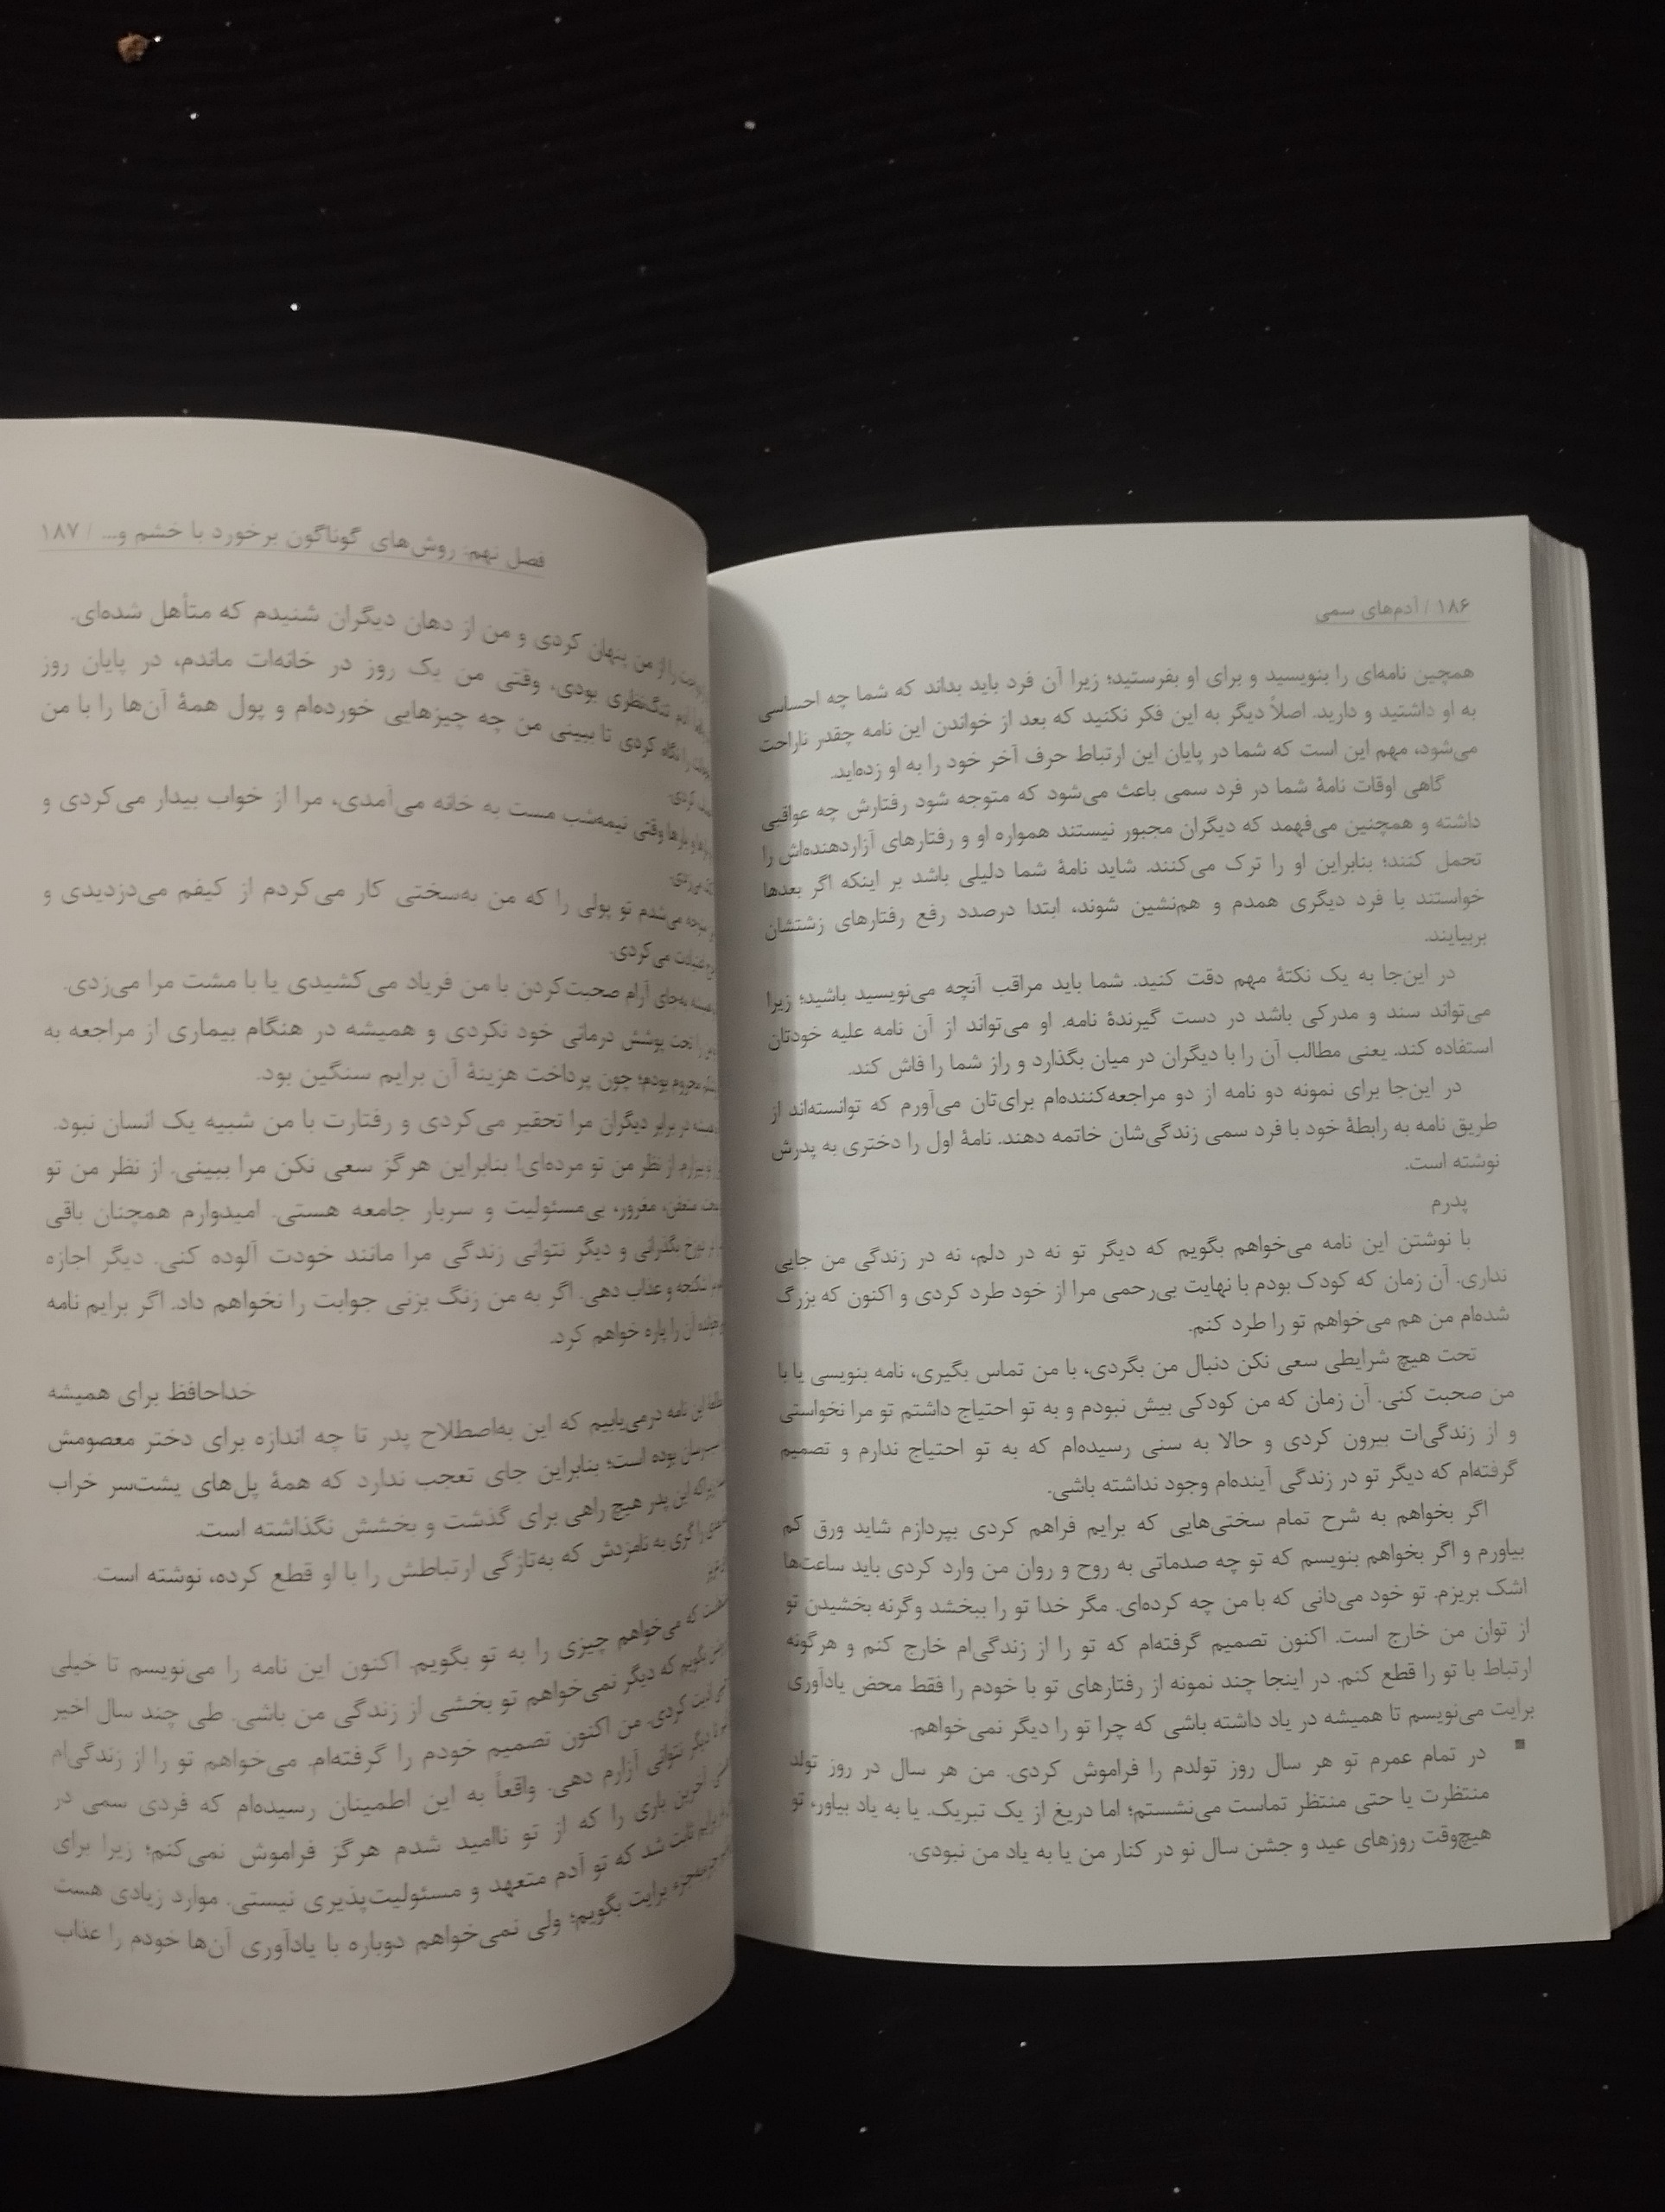 ۱۸۶ / آدم‌های سمی
همچین نامه‌ای را بنویسید و برای او بفرستید؛ زیرا آن فرد باید بداند که شما چه احساسی
به او داشتید و دارید. اصلاً دیگر به این فکر نکنید که بعد از خواندن این نامه چقدر ناراحت
می‌شود، مهم این است که شما در پایان این ارتباط حرف آخر خود را به او زده‌اید.
گاهی اوقات نامهٔ شما در فرد سمی باعث می‌شود که متوجه شود رفتارش چه عواقبی
داشته و همچنین می‌فهمد که دیگران مجبور نیستند همواره او و رفتارهای آزاردهنده‌اش را
تحمل کنند؛ بنابراین او را ترک می‌کنند. شاید نامهٔ شما دلیلی باشد بر اینکه اگر بعدها
خواستند با فرد دیگری همدم و هم‌نشین شوند، ابتدا درصدد رفع رفتارهای زشتشان
بربیایند.
در این‌جا به یک نکتهٔ مهم دقت کنید. شما باید مراقب آنچه می‌نویسید باشید؛ زیرا
می‌تواند سند و مدرکی باشد در دست گیرندهٔ نامه. او می‌تواند از آن نامه علیه خودتان
استفاده کند. یعنی مطالب آن را با دیگران در میان بگذارد و راز شما را فاش کند.
در این‌جا برای نمونه دو نامه از دو مراجعه‌کننده‌ام برای‌تان می‌آورم که توانسته‌اند از
طریق نامه به رابطهٔ خود با فرد سمی زندگی‌شان خاتمه دهند. نامهٔ اول را دختری به پدرش
نوشته است.
پدرم
با نوشتن این نامه می‌خواهم بگویم که دیگر تو نه در دلم، نه در زندگی من جایی
نداری. آن زمان که کودک بودم با نهایت بی‌رحمی مرا از خود طرد کردی و اکنون که بزرگ
شده‌ام من هم می‌خواهم تو را طرد کنم.
تحت هیچ شرایطی سعی نکن دنبال من بگردی، با من تماس بگیری، نامه بنویسی یا با
من صحبت کنی. آن زمان که من کودکی بیش نبودم و به تو احتیاج داشتم تو مرا نخواستی
و از زندگی‌ات بیرون کردی و حالا به سنی رسیده‌ام که به تو احتیاج ندارم و تصمیم
گرفته‌ام که دیگر تو در زندگی آینده‌ام وجود نداشته باشی.
اگر بخواهم به شرح تمام سختی‌هایی که برایم فراهم کردی بپردازم شاید ورق کم
بیاورم و اگر بخواهم بنویسم که تو چه صدماتی به روح و روان من وارد کردی باید ساعت‌ها
اشک بریزم. تو خود می‌دانی که با من چه کرده‌ای. مگر خدا تو را ببخشد وگرنه بخشیدن تو
از توان من خارج است. اکنون تصمیم گرفته‌ام که تو را از زندگی‌ام خارج کنم و هرگونه
ارتباط با تو را قطع کنم. در اینجا چند نمونه از رفتارهای تو با خودم را فقط محض یادآوری
برایت می‌نویسم تا همیشه در یاد داشته باشی که چرا تو را دیگر نمی‌خواهم.
■ در تمام عمرم تو هر سال روز تولدم را فراموش کردی. من هر سال در روز تولد
منتظرت یا حتی منتظر تماست می‌نشستم؛ اما دریغ از یک تبریک. یا به یاد بیاور، تو
هیچ‌وقت روزهای عید و جشن سال نو در کنار من یا به یاد من نبودی.
فصل نهم: روش‌های گوناگون برخورد با خشم و... / ۱۸۷
را از من پنهان کردی و من از دهان دیگران شنیدم که متأهل شده‌ای.
آدم تنگ‌نظری بودی، وقتی من یک روز در خانه‌ات ماندم، در پایان روز
را نگاه کردی تا ببینی من چه چیزهایی خورده‌ام و پول همهٔ آن‌ها را با من
کردی.
وقتی نیمه‌شب مست به خانه می‌آمدی، مرا از خواب بیدار می‌کردی و
می‌زدی.
متوجه می‌شدم تو پولی را که من به‌سختی کار می‌کردم از کیفم می‌دزدیدی و
می‌کردی.
به‌جای آرام صحبت‌کردن با من فریاد می‌کشیدی یا با مشت مرا می‌زدی.
تحت پوشش درمانی خود نکردی و همیشه در هنگام بیماری از مراجعه به
محروم بودم؛ چون پرداخت هزینهٔ آن برایم سنگین بود.
در برابر دیگران مرا تحقیر می‌کردی و رفتارت با من شبیه یک انسان نبود.
بیزارم. از نظر من تو مرده‌ای! بنابراین هرگز سعی نکن مرا ببینی. از نظر من تو
متعفن، مغرور، بی‌مسئولیت و سربار جامعه هستی. امیدوارم همچنان باقی
بگذرانی و دیگر نتوانی زندگی مرا مانند خودت آلوده کنی. دیگر اجازه
شکنجه و عذاب دهی. اگر به من زنگ بزنی جوابت را نخواهم داد. اگر برایم نامه
آن را پاره خواهم کرد.
خداحافظ برای همیشه
این نامه درمی‌یابیم که این به‌اصطلاح پدر تا چه اندازه برای دختر معصومش
بوده است؛ بنابراین جای تعجب ندارد که همهٔ پل‌های پشت‌سر خراب
این پدر هیچ راهی برای گذشت و بخشش نگذاشته است.
را گری به نامزدش که به‌تازگی ارتباطش را با او قطع کرده، نوشته است.
که می‌خواهم چیزی را به تو بگویم. اکنون این نامه را می‌نویسم تا خیلی
بگویم که دیگر نمی‌خواهم تو بخشی از زندگی من باشی. طی چند سال اخیر
اذیت کردی. من اکنون تصمیم خودم را گرفته‌ام. می‌خواهم تو را از زندگی‌ام
دیگر نتوانی آزارم دهی. واقعاً به این اطمینان رسیده‌ام که فردی سمی در
آخرین باری را که از تو ناامید شدم هرگز فراموش نمی‌کنم؛ زیرا برای
برایم ثابت شد که تو آدم متعهد و مسئولیت‌پذیری نیستی. موارد زیادی هست
برایت بگویم؛ ولی نمی‌خواهم دوباره با یادآوری آن‌ها خودم را عذاب